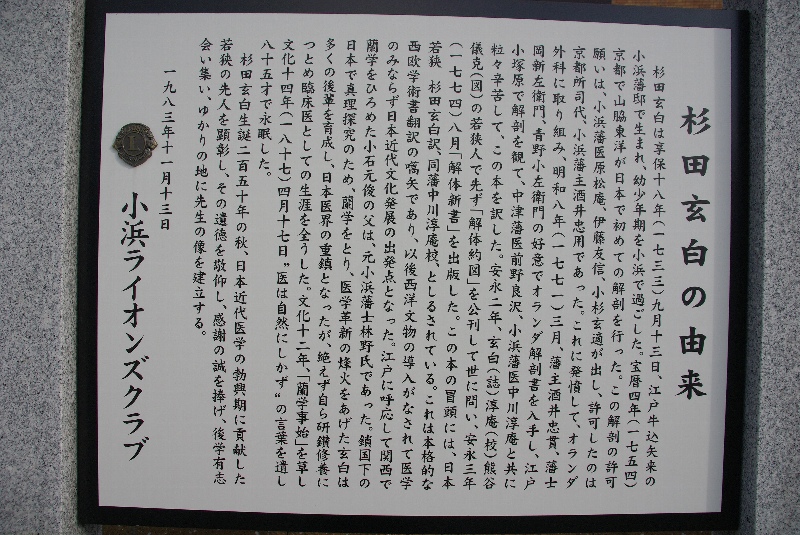 杉田玄白の由来
杉田玄白は享保十八年(一七三三)九月十三日、江戸牛込矢来の
小浜藩邸で生まれ、幼少年期を小浜で過ごした。宝暦四年(一七五四)
京都で山脇東洋が日本で初めての解剖を行った。この解剖の許可
願いは、小浜藩医原松庵、伊藤友信、小杉玄適が出し、許可したのは
京都所司代、小浜藩主酒井忠用であった。これに発憤して、オランダ
外科に取り組み、明和八年(一七七一)三月、藩主酒井忠貫、藩士
岡新左衛門、青野小左衛門の好意でオランダ解剖書を入手し、江戸
小塚原で解剖を観て、中津藩医前野良沢、小浜藩医中川淳庵と共に
粒々辛苦して、この本を訳した。安永二年、玄白(誌)淳庵(校)熊谷
儀克(図)の若狭人で先ず「解体約図」を公刊して世に問い、安永三年
(一七七四)八月「解体新書」を出版した。この本の冒頭には、日本
若狭 杉田玄白訳、同藩中川淳庵校、としるされている。これは本格的な
西欧学術書翻訳の嚆矢であり、以後西洋文物の導入がなされて医学
のみならず日本近代文化発展の出発点となった。江戸に呼応して関西で
蘭学をひろめた小石元俊の父は、元小浜藩士林野氏であった。鎖国下の
日本で真理探究のため、蘭学をとり、医学革新の烽火をあげた玄白は
多くの後輩を育成し、日本医界の重鎮となったが、絶えず自ら研鑽修養に
つとめ臨床医としての生涯を全うした。文化十二年、「蘭学事始」を草し
文化十四年(一八十七)四月十七日〝医は自然にしかず〟の言葉を遺し
八十五才で永眠した。
杉田玄白生誕二百五十年の秋、日本近代医学の勃興期に貢献した
若狭の先人を顕彰し、その遺徳を敬仰し、感謝の誠を捧げ、後学有志
会い集い、ゆかりの地に先生の像を建立する。
一九八三年十一月十三日
小浜ライオンズクラブ